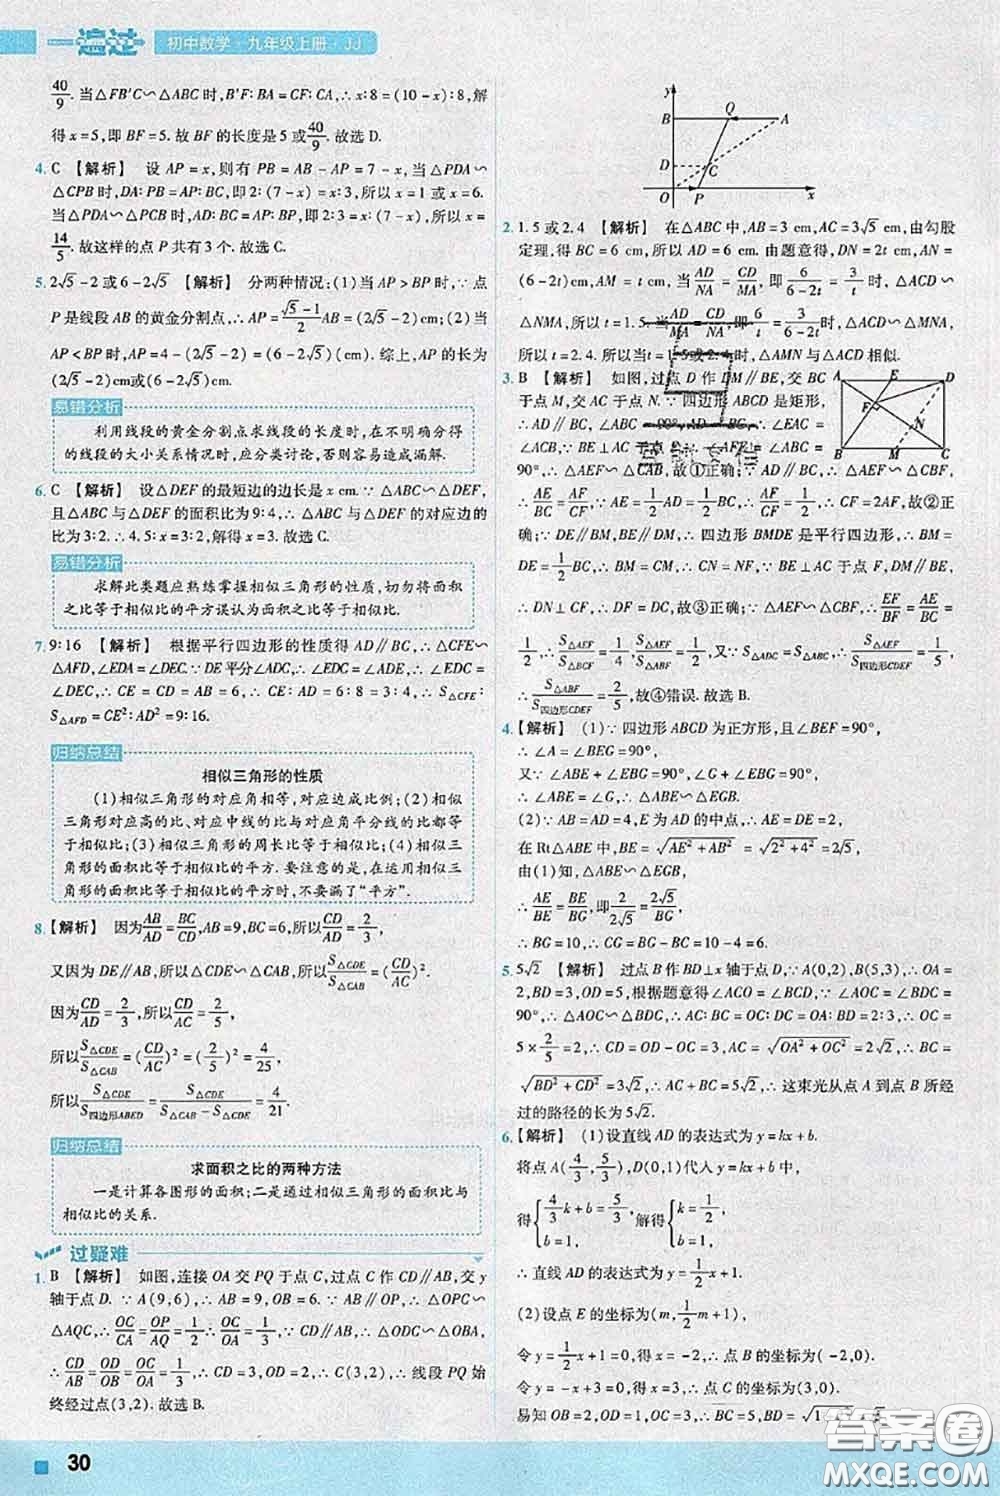 一遍过 初中数学·九年级上册·JJ
40/9. 当△FB′C∽△ABC时,B′F∶BA=CF∶CA,∴x∶8=(10-x)∶8,解
得x=5,即BF=5.故BF的长度是5或40/9.故选D.
4. C 【解析】 设AP=x,则有PB=AB-AP=7-x,当△PDA∽
△CPB时,DA∶PB=AP∶BC,即2∶(7-x)=x∶3,所以x=1或x=6.
当△PDA∽△PCB时,AD∶BC=PA∶PB,即2∶3=x∶(7-x),所以x=
14/5.故这样的点P共有3个.故选C.
5. 2√5-2或6-2√5 【解析】 分两种情况:(1)当AP>BP时,∵点
P是线段AB的黄金分割点,∴AP=(√5-1)/2 AB=(2√5-2)cm;(2)当
AP<BP时,AP=4-(2√5-2)=(6-2√5)cm.综上,AP的长为
(2√5-2)cm或(6-2√5)cm.
易错分析
利用线段的黄金分割点求线段的长度时,在不明确分得
的线段的大小关系情况时,应分类讨论,否则容易造成漏解.
6. C 【解析】 设△DEF的最短边的边长是x cm.∵△ABC∽△DEF,
且△ABC与△DEF的面积比为9∶4,∴△ABC与△DEF的对应边的
比为3∶2.∴4.5∶x=3∶2,解得x=3.故选C.
易错分析
求解此类题应熟练掌握相似三角形的性质,切勿将面积
之比等于相似比的平方误认为面积之比等于相似比.
7. 9∶16 【解析】 根据平行四边形的性质得AD∥BC,∴△CFE∽
△AFD,∠EDA=∠DEC.∵DE平分∠ADC,∴∠EDC=∠ADE,∴∠EDC=
∠DEC,∴CE=CD=6,∴CE∶AD=6∶8=3∶4,∴S△CFE∶
S△AFD=CE²∶AD²=9∶16.
归纳总结
相似三角形的性质
(1)相似三角形的对应角相等,对应边成比例;(2)相似
三角形对应高的比、对应中线的比与对应角平分线的比都等
于相似比;(3)相似三角形的周长比等于相似比;(4)相似三
角形的面积比等于相似比的平方.要注意的是,在运用相似三
角形的面积比等于相似比的平方时,不要漏了“平方”.
8. 【解析】 因为AB/AD=BC/CD,AB=9,BC=6,所以CD/AD=2/3,
又因为DE∥AB,所以△CDE∽△CAB,所以S△CDE/S△CAB=(CD/AC)².
因为CD/AD=2/3,所以CD/AC=2/5,
所以S△CDE/S△CAB=(CD/AC)²=(2/5)²=4/25,
所以S△CDE/S四边形ABED=S△CDE/(S△CAB-S△CDE)=4/21.
归纳总结
求面积之比的两种方法
一是计算各图形的面积;二是通过相似三角形的面积比与
相似比的关系.
过疑难
1. B 【解析】 如图,连接OA交PQ于点C,过点C作CD∥AB,交y
轴于点D.∵A(9,6),∴AB=9,OB=6.∵AB∥x轴,∴△OPC∽
△AQC,∴OC/CA=OP/AQ=1/2,∴OC/OA=1/3.∵CD∥AB,∴△ODC∽△OBA,
∴CD/AB=OD/OB=OC/OA=1/3,∴CD=3,OD=2,∴C(3,2),∴线段PQ始
终经过点(3,2).故选B.
y
B Q A
D C
O P x
2. 1.5或2.4 【解析】 在△ABC中,AB=3 cm,AC=3√5 cm,由勾股
定理,得BC=6 cm,所以AD=6 cm.由题意得,DN=2t cm,AN=
(6-2t)cm,AM=t cm,当AD/NA=CD/MA,即6/(6-2t)=3/t时,△ACD∽
△NMA,所以t=1.5,当AD/MA=CD/NA,即6/t=3/(6-2t)时,△ACD∽△MNA,
所以t=2.4.所以当t=1.5或2.4时,△AMN与△ACD相似.
3. B 【解析】 如图,过点D作DM∥BE,交BC
于点M,交AC于点N.∵四边形ABCD是矩形,
∴AD∥BC,∠ABC=90°,AD=BC,∴∠EAC=
∠ACB,∵BE⊥AC于点F,∴∠AFE=∠ABC=
90°,∴△AEF∽△CAB,故①正确;∵AD∥BC,∴△AEF∽△CBF,∴
AE/BC=AF/CF,∵AE=1/2AD=1/2BC,∴AF/CF=1/2,∴CF=2AF,故②正
确;∵DE∥BM,BE∥DM,∴四边形BMDE是平行四边形,∴BM=
DE=1/2BC,∴BM=CM,∴CN=NF,∵BE⊥AC于点F,DM∥BE,
∴DN⊥CF,∴DF=DC,故③正确;∵△AEF∽△CBF,∴EF/BF=AE/BC=
1/2,∴S△AEF/S△BCF=1/4,S△AEF/S△ABF=1/2,又∵S△ADC=S△ABC,∴S△AEF/S四边形CDEF=1/5,
∴S△ABF/S四边形CDEF=2/5,故④错误.故选B.
A E D
F
N
B M C
4. 【解析】 (1)∵四边形ABCD为正方形,且∠BEG=90°,
∴∠A=∠BEG=90°,
又∵∠ABE+∠EBG=90°,∠G+∠EBG=90°,
∴∠ABE=∠G,∴△ABE∽△EGB.
(2)∵AB=AD=4,E为AD的中点,∴AE=DE=2,
在Rt△ABE中,BE=√(AE²+AB²)=√(2²+4²)=2√5,
由(1)知,△ABE∽△EGB,
∴AE/BE=BE/BG,即2/2√5=2√5/BG,
∴BG=10,∴CG=BG-BC=10-4=6.
5. 5√2 【解析】 过点B作BD⊥x轴于点D,∵A(0,2),B(5,3),∴OA=
2,BD=3,OD=5,根据题意得∠ACO=∠BCD,∵∠AOC=∠BDC=
90°,∴△AOC∽△BDC,∴AC∶BC=OC∶DC=OA∶BD=2∶3,∴OC=
5×2/5=2,∴CD=OD-OC=3,AC=√(OA²+OC²)=2√2,∴BC=
√(BD²+CD²)=3√2,∴AC+BC=5√2,∴这束光从点A到点B所经
过的路径的长为5√2.
6. 【解析】 (1)设直线AD的表达式为y=kx+b.
将点A(4/3,5/3),D(0,1)代入y=kx+b中,
得{4/3k+b=5/3, b=1, 解得{k=1/2, b=1,
∴直线AD的表达式为y=1/2x+1.
(2)设点E的坐标为(m,1/2m+1),
令y=1/2x+1=0,得x=-2,∴点B的坐标为(-2,0).
令y=-x+3=0,得x=3,∴点C的坐标为(3,0).
易知OB=2,OD=1,OC=3,∴BC=5,BD=√
30
答案圈
MXQE.COM